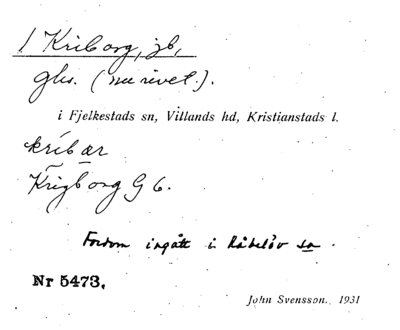 1 Kriborg, jb,
glh. (nu rivet.).
i Fjelkestads sn, Villands hd, Kristianstads l.
kríbær
Krigborg G 6.
Fordom ingått i Råbelöv sn.
Nr 5473.
John Svensson. 1931